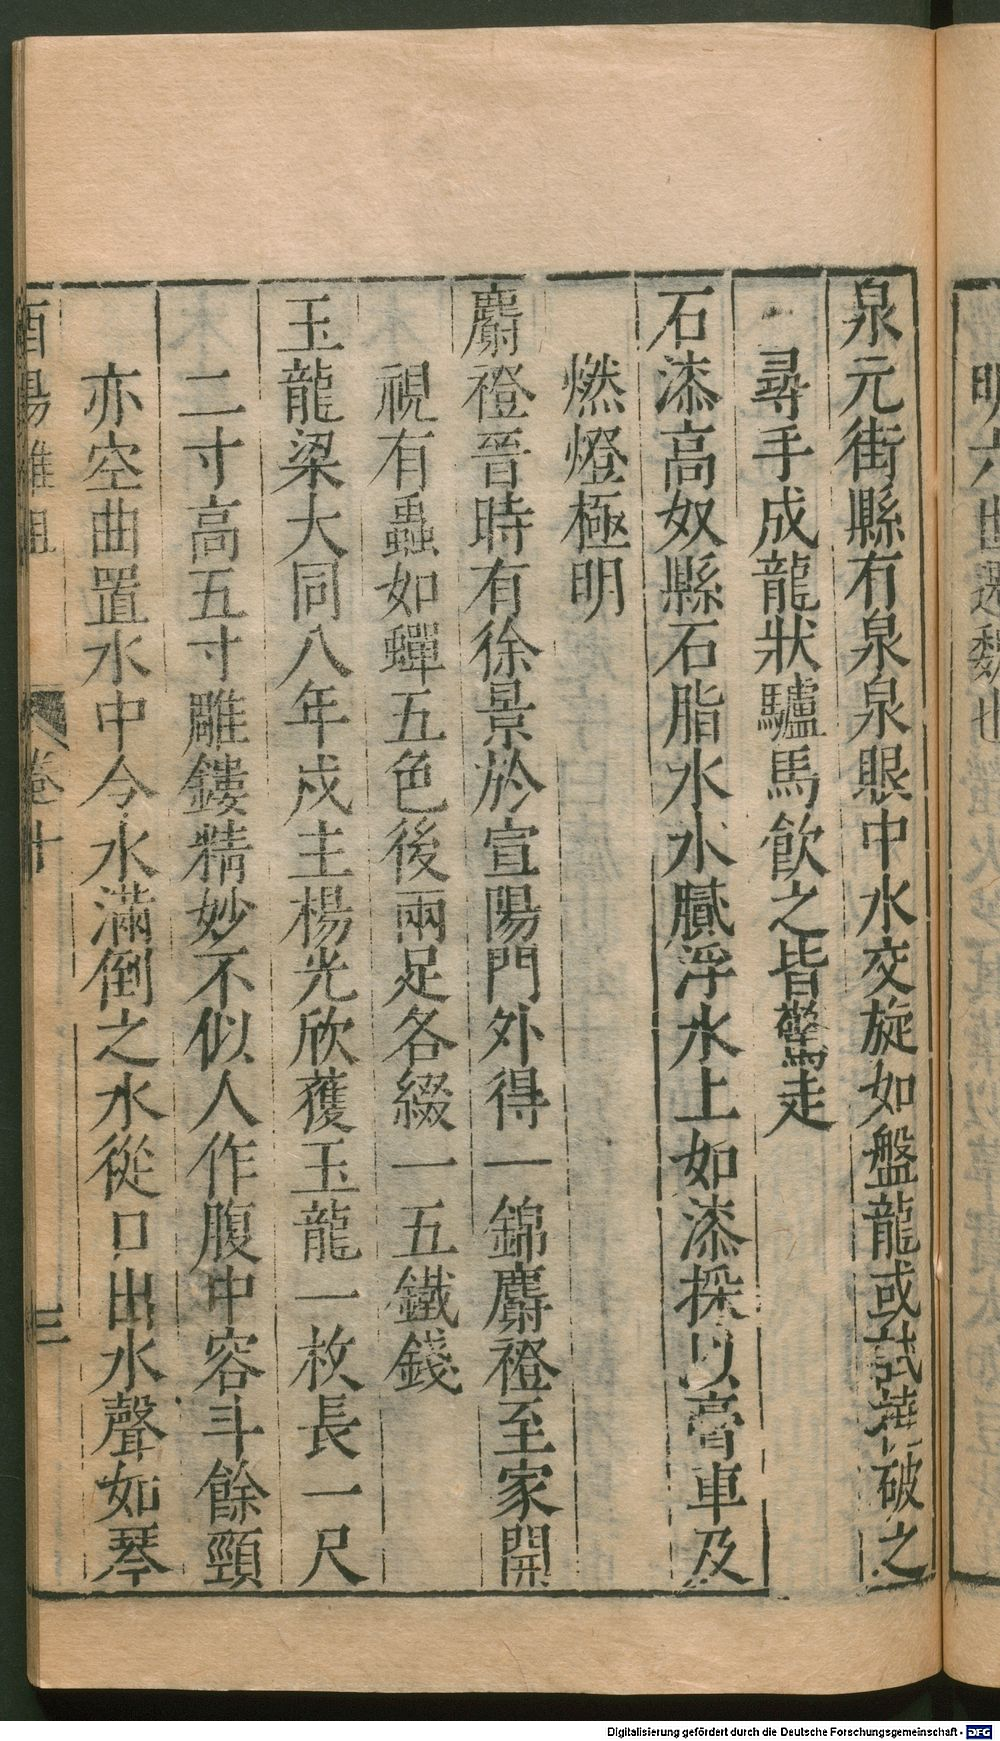 明
曲
魏也
泉元街縣有泉泉眼中水交旋如盤龍或試撓破之
尋手成龍狀驢馬飲之皆驚走
石漆高奴縣石脂水水膩浮水上如漆採以膏車及
燃燈極明
麝橙晉時有徐景於宣陽門外得一錦麝橙至家開
視有蟲如蟬五色後兩足各綴一五鐵錢
玉龍梁大同八年戍主楊光欣獲玉龍一枚長一尺
二寸高五寸雕鏤精妙不似人作腹中容斗餘頸
亦空曲置水中令水滿倒之水從口出水聲如琴
酉陽雜俎 卷十 三
Digitalisierung gefördert durch die Deutsche Forschungsgemeinschaft - DFG